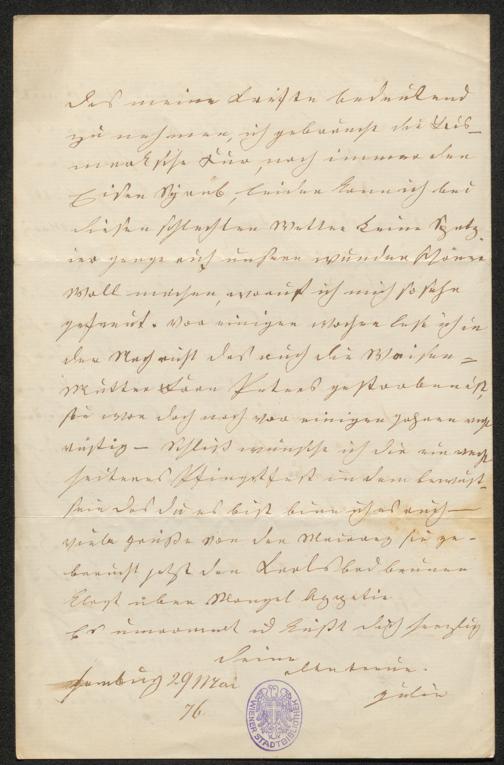 das meine Kräfte bedeutend
zu nehmen, ich gebrauche die
Kur, noch immer den
Eisen Syrub, leider kann ich bei
diesen schlechten Wetter keine Spatz-
ier genge auf unsern wunder schönen
Wall machen, worauf ich mich so sehr
gefreut. vor einigen Wochen lese ich in
den Nachricht das auch die Waisen=
Mutter Peters gestorben ist,
sie war doch noch vor einigen Jahren recht
rüstig — Schließ wünsche ich dir ein recht
heiteres Pfingstfest in dem bewust-
sein das du es bist bin ich es auch —
viele grüße von der sie ge-
braucht jetzt den Karlsbad brunnen
klagt über Mangel Appetit
Es umarmt u küßt dich herzlig
Deine
alte treue.
Hamburg 29 Mai
76.
Julie
WIENER STADTBIBLIOTHEK